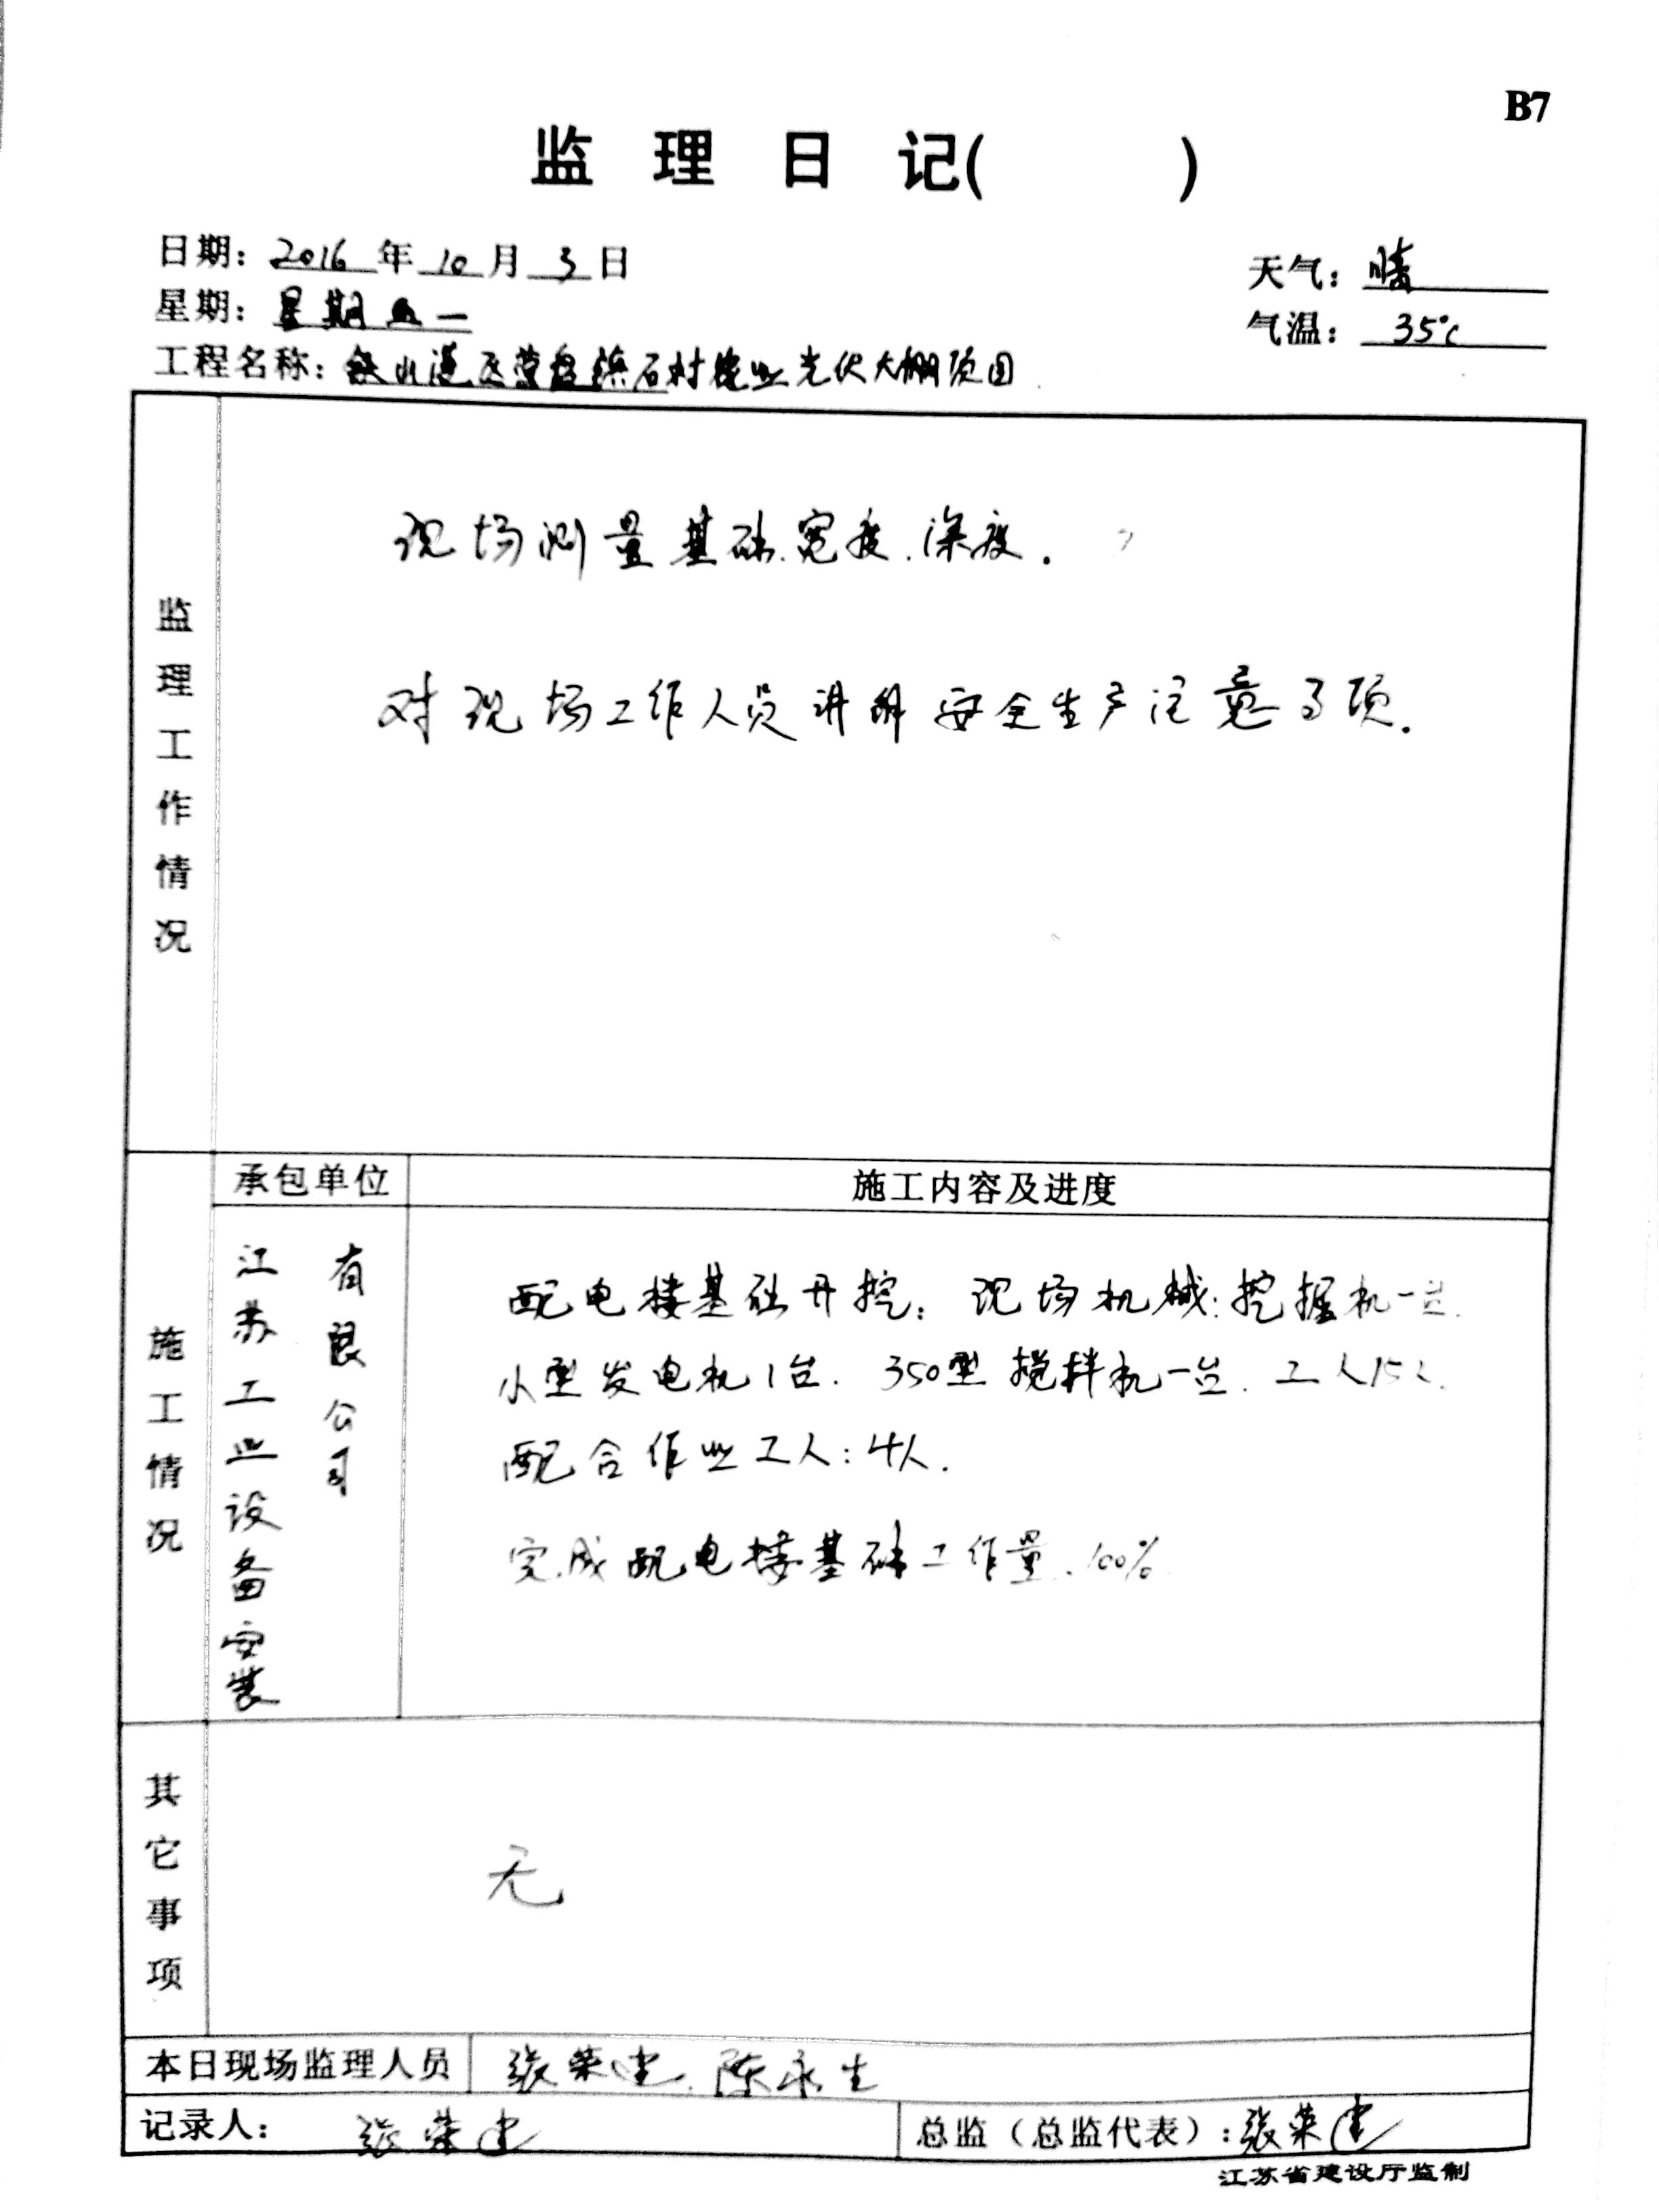 B7
监理日记( )
日期：2016年10月3日
天气：晴
星期：星期一
气温：35℃
工程名称：铁山港区营盘镇石村农业光伏大棚项目
监理工作情况
现场测量基础.宽度.深度.
对现场工作人员讲解安全生产注意事项.
施工情况
承包单位
施工内容及进度
江苏工业设备安装
有限公司
配电楼基础开挖：现场机械：挖掘机一台.
小型发电机1台. 350型搅拌机一台. 工人15人.
配合作业工人：4人.
完成配电楼基础工作量.100%
其它事项
无
本日现场监理人员 张荣建.陈永生
记录人： 张荣建
总监（总监代表）：张荣建
江苏省建设厅监制